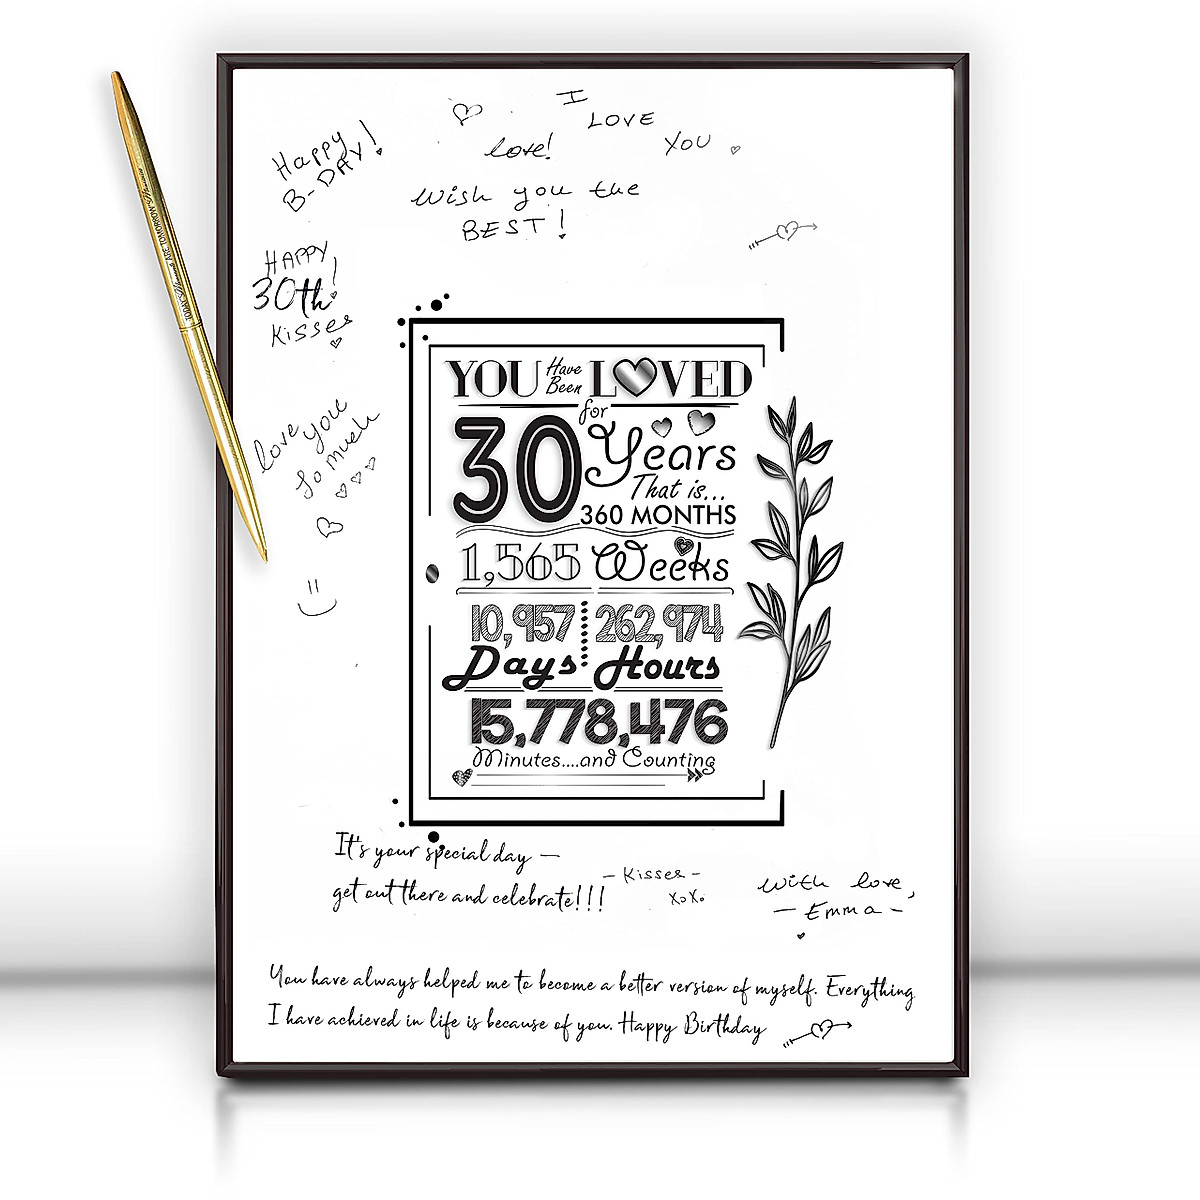 I
LOVE
YOU
love!
Happy
B-DAY!
Wish you the
BEST!
HAPPY
30th!
Kisses
love you
so much
TODAY'S Memories ARE TOMORROW'S Memories
YOU Have Been LOVED
for
30 Years
That is...
360 MONTHS
1,565 Weeks
10,957 262,974
Days Hours
15,778,476
Minutes....and Counting
It's your special day –
get out there and celebrate!!!
- Kisses -
XoXo
With love,
- Emma -
You have always helped me to become a better version of myself. Everything
I have achieved in life is because of you. Happy Birthday